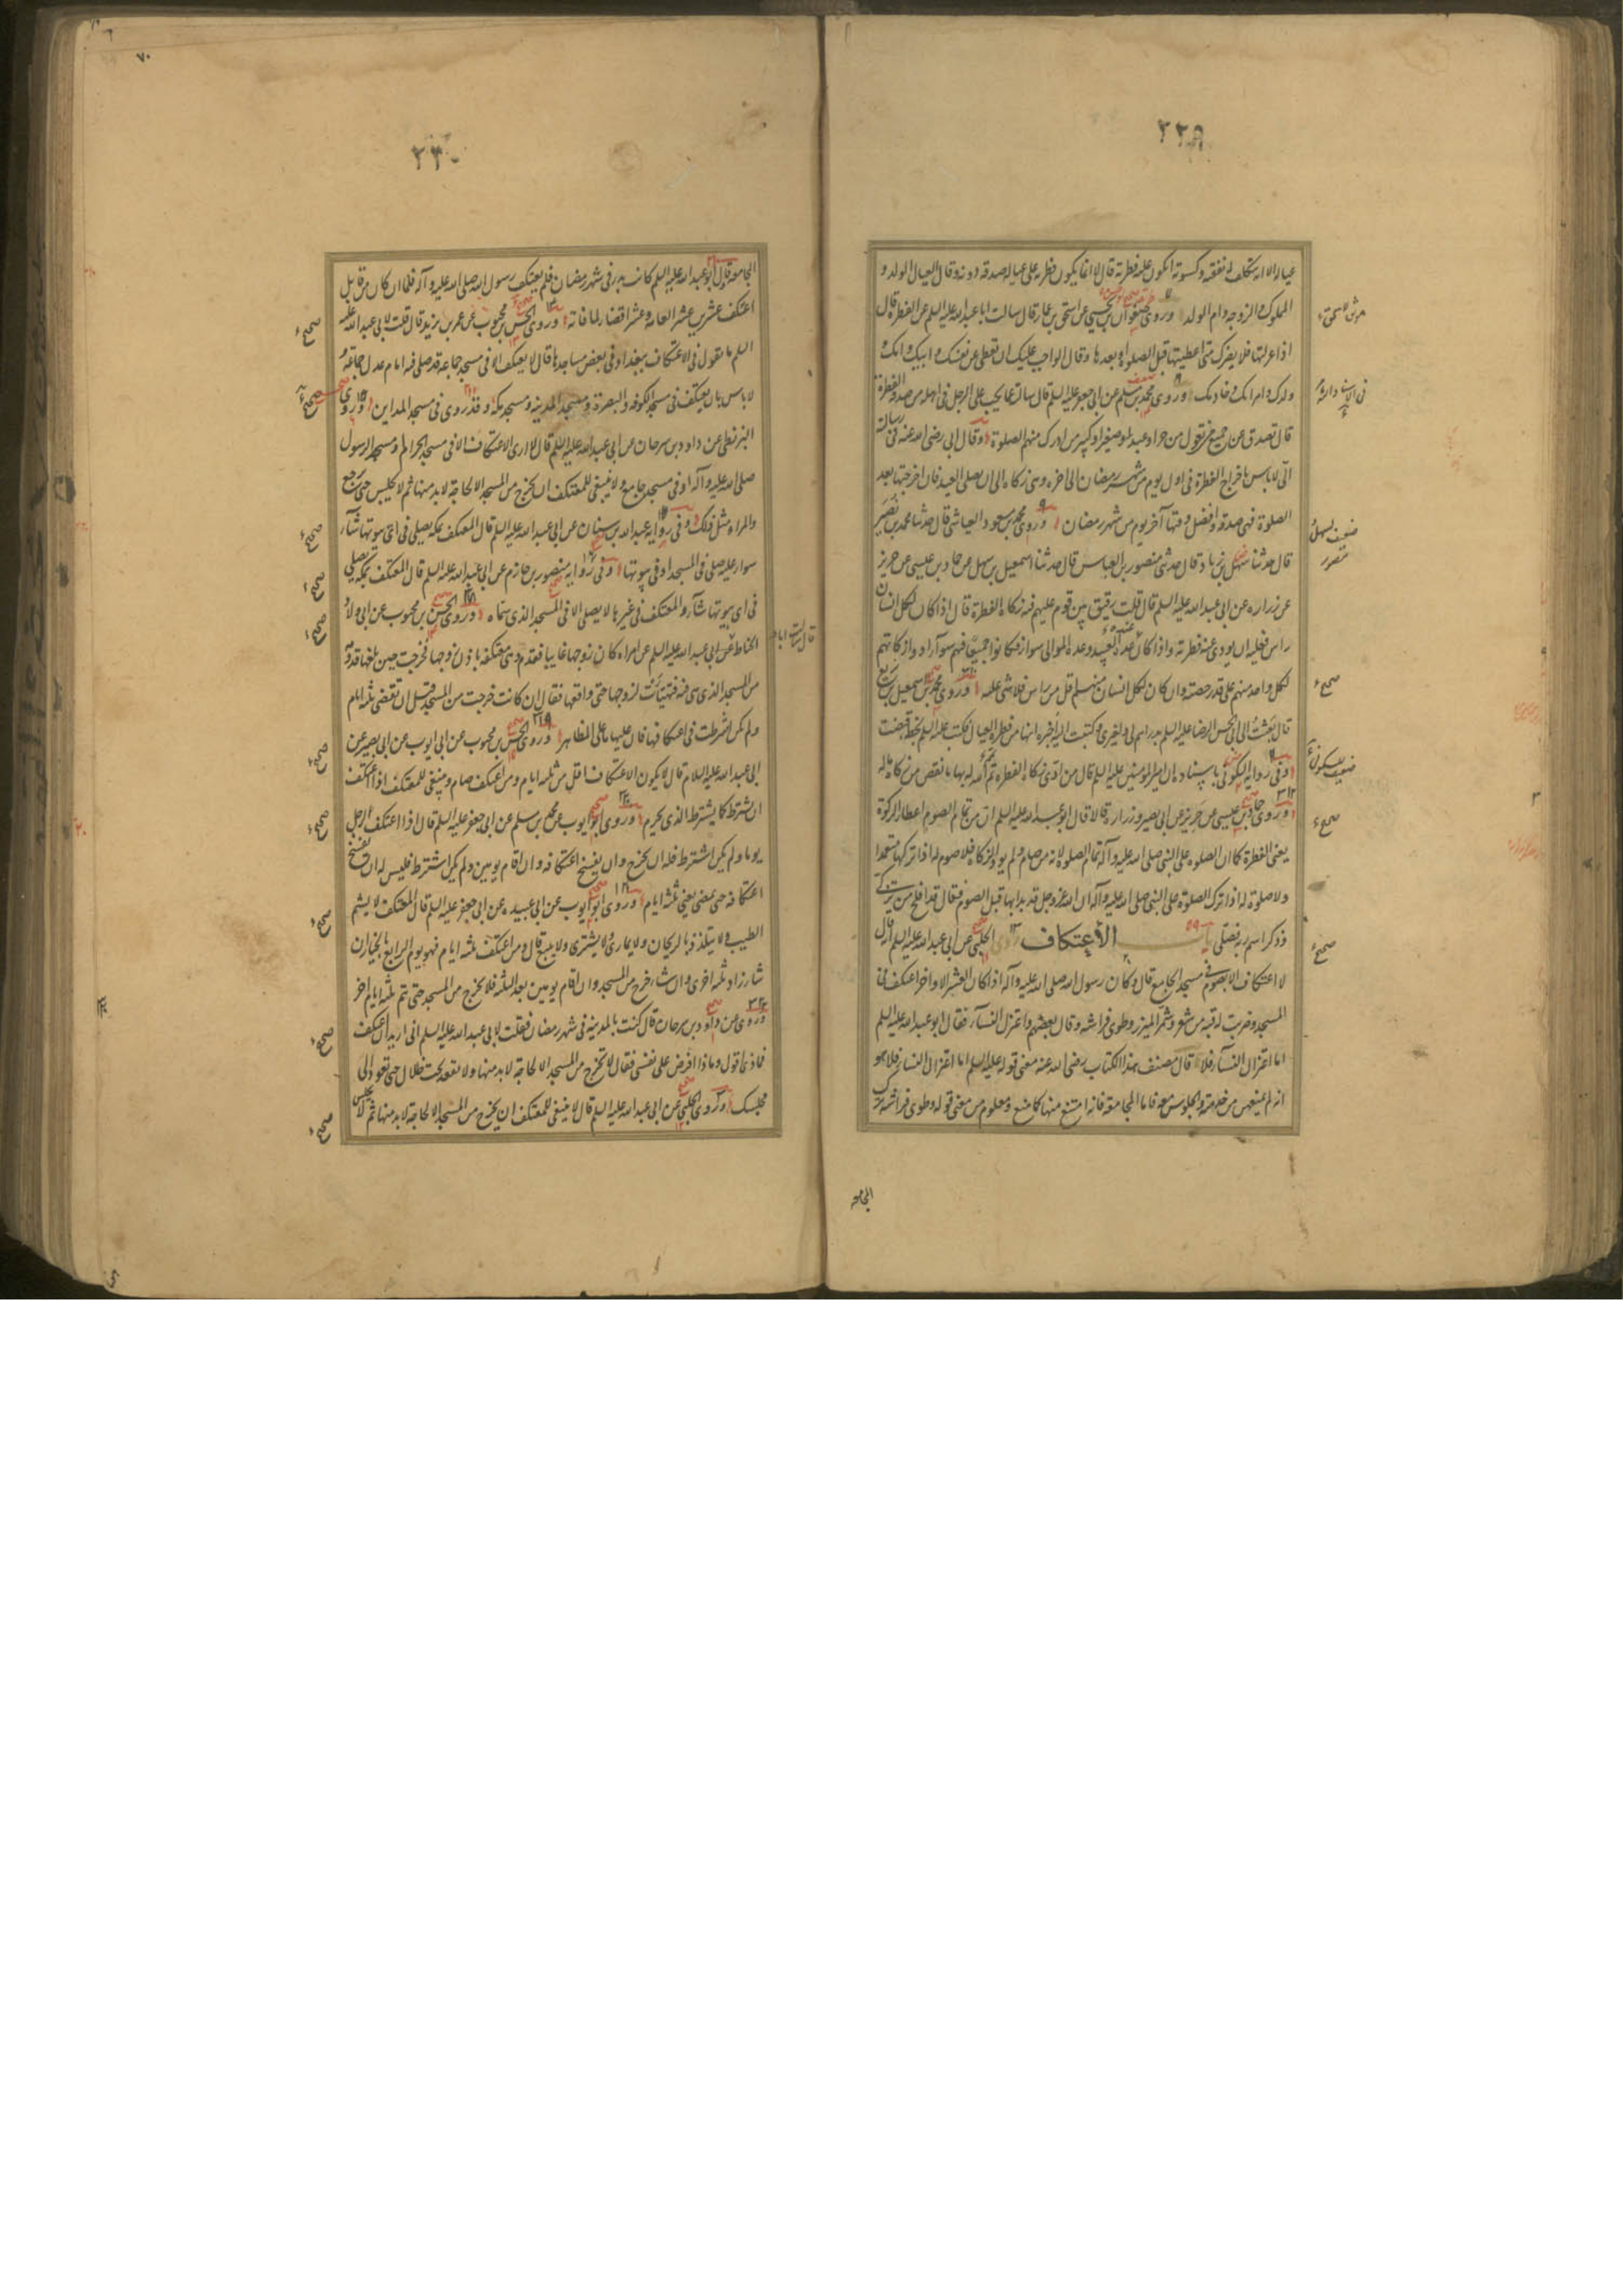 ٢٢٩
عياله الا انه يتكلف له نفقته وكسوته اتكون عليه فطرته قال لا انما يكون فطرته على عياله صدقة دونه وقال العيال الولد و
المملوك والزوجه وام الولد وروى صفوان بن يحيى عن اسحق بن عمار قال سالت ابا عبد الله عليه السلم عن الفطرة قال
اذا عزلتها فلا يضرك متى اعطيتها قبل الصلوة او بعدها وقال الواجب عليك ان تعطى عن نفسك وابيك وامك و
ولدك وامراتك وخادمك وروى محمد بن مسلم عن ابى جعفر عليه السلم قال سالته عما يجب على الرجل فى اهله من صدقة الفطرة
قال تصدق عن جميع من تعول من حر او عبد او صغير او كبير من ادرك منهم الصلوة وقال ابى رضى الله عنه فى رسالته
الىّ لا باس باخراج الفطرة فى اول يوم من شهر رمضان الى اخره وهى زكاه الى ان يصلى العيد فان اخرجتها بعد
الصلوة فهى صدقة وافضل وقتها آخر يوم من شهر رمضان وروى محمد بن مسعود العياشى قال حدثنا محمد بن نصير
قال حدثنا سهل بن زياد قال حدثنى منصور بن العباس قال حدثنا اسمعيل بن سهل عن حماد بن عيسى عن حريز
عن زراره عن ابى عبد الله عليه السلم قال قلت رقيق بين قوم عليهم فيه زكاه الفطرة قال اذا كان لكل انسان
راس فعليه ان يودى عنه فطرته واذا كان عدة العبيد وعدة الموالى سواء وكانوا جميعا فهم سواء ادوا زكاتهم
لكل واحد منهم على قدر حصته وان كان لكل انسان منهم اقل من راس فلا شى عليهم وروى محمد بن اسمعيل بن بزيع
قال بعثتُ الى ابى الحسن الرضا عليه السلم بدراهم لى ولغيرى وكتبت اليه اخبره انها من فطرة العيال فكتب عليه السلم بخطه قبضت
وفى رواية السكونى باسناده ان امير المومنين عليه السلم قال من ادى زكاه الفطرة تمم الله له بها ما نقص من زكاه ماله
وروى حماد بن عيسى عن حريز عن ابى بصير وزراره قالا قال ابو عبد الله عليه السلم ان من تمام الصوم اعطاء الزكوة
يعنى الفطرة كما ان الصلوه على النبى صلى الله عليه وآله تمام الصلوه لانه من صام ولم يود الزكاه فلا صوم له اذا تركها متعمدا
ولا صلوة له اذا ترك الصلوة على النبى صلى الله عليه وآله ان الله عز وجل قد بدا بها قبل الصوم فقال قد افلح من تزكى
وذكر اسم ربه فصلى باب الأعتكاف روى الحلبى عن ابى عبد الله عليه السلم انه قال
لا اعتكاف الا بصوم فى مسجد الجامع قال وكان رسول الله صلى الله عليه وآله اذا كان العشر الاواخر اعتكف فى
المسجد وضربت له قبه من شعر وشمّر الميزر وطوى فراشه وقال بعضهم واعتزل النسآء فقال ابو عبد الله عليه السلم
اما اعتزال النسآء فلا قال مصنف هذا الكتاب رضى الله عنه معنى قوله عليه السلم اما اعتزال النساء فلا هو
انه لم يمنعهن من خدمته والجلوس معه فاما المجامعة فانه امتنع منها كما منع ومعلوم من معنى قوله وطوى فراشه ترك
المجامعة
صحيح
صحيح
صحيح
٢٣٠
المجامعة وقال ابو عبد الله عليه السلم كانت بدر فى شهر رمضان فلم يعتكف رسول الله صلى الله عليه وآله فلما ان كان من قابل
اعتكف عشرين عشرا لعامه وعشرا قضاء لما فاته وروى الحسن بن محبوب عن عمر بن يزيد قال قلت لابى عبد الله عليه
السلم ما تقول فى الاعتكاف ببغداد فى بعض مساجدها قال لا يعتكف الا فى مسجد جماعه قد صلى فيه امام عدل جماعة و
لا باس بان يعتكف فى مسجد الكوفه والبصرة ومسجد المدينه ومسجد مكة وقد روى فى مسجد المداين وروى
البزنطى عن داود بن سرحان عن ابى عبد الله عليه السلم قال لا ارى الاعتكاف الا فى مسجد الحرام ومسجد الرسول
صلى الله عليه وآله او فى مسجد جامع ولا ينبغى للمعتكف ان يخرج من المسجد الا لحاجة لا بد منها ثم لا يجلس حتى يرجع
والمراه مثل ذلك وفى روايه عبد الله بن سنان عن ابى عبد الله عليه السلم قال المعتكف بمكه يصلى فى اى بيوتها شآء
سواء عليه صلى فى المسجد او فى بيوتها وفى روايه منصور بن حازم عن ابى عبد الله عليه السلم قال المعتكف بمكه يصلى
فى اى بيوتها شآء والمعتكف فى غيرها لا يصلى الا فى المسجد الذى سماه وروى الحسن بن محبوب عن ابى ولاد
الحناط عن ابى عبد الله عليه السلم عن امراه كان زوجها غايبا فقدم وهى معتكفه باذن زوجها فخرجت حين بلغها قدومه
من المسجد الذى هى فيه فتهيأت لزوجها حتى واقعها فقال ان كانت خرجت من المسجد قبل ان تقضى ثلثه ايام
ولم تكن اشترطت فى اعتكافها فان عليها ما على المظاهر وروى الحسن بن محبوب عن ابى ايوب عن ابى بصير عن
ابى عبد الله عليه السلام قال لا يكون الاعتكاف اقل من ثلثه ايام ومن اعتكف صام وينبغى للمعتكف اذا اعتكف
ان يشترط كما يشترط الذى يحرم وروى ابو ايوب عن محمد بن مسلم عن ابى جعفر عليه السلم قال اذا اعتكف الرجل
يوما ولم يكن اشترط فله ان يخرج وان يفسخ اعتكافه وان اقام يومين ولم يكن اشترط فليس له ان يفسخ
اعتكافه حتى يمضى ثلثه ايام وروى ابو ايوب عن ابى عبيده عن ابى جعفر عليه السلم قال المعتكف لا يشم
الطيب ولا يتلذذ بالريحان ولا يمارى ولا يشترى ولا يبيع قال ومن اعتكف ثلثه ايام فهو يوم الرابع بالخيار ان
شاء زاد ثلثه اخرى وان شاء خرج من المسجد وان اقام يومين بعد الثلثه فلا يخرج من المسجد حتى يتم ثلثه ايام اخر
وروى عن داود بن سرحان قال كنت بالمدينه فى شهر رمضان فقلت لابى عبد الله عليه السلم انى اريد ان اعتكف
فماذا اقول وماذا افرض على نفسى فقال لا تخرج من المسجد الا لحاجه لا بد منها ولا تقعد تحت ظلال حتى تعود الى
مجلسك وروى الحلبى عن ابى عبد الله عليه السلم قال لا ينبغى للمعتكف ان يخرج من المسجد الا لحاجة لا بد منها ثم لا يجلس
صحيح
صحيح
صحيح
صحيح
صحيح
صحيح
صحيح
صحيح
صحيح
٧٠